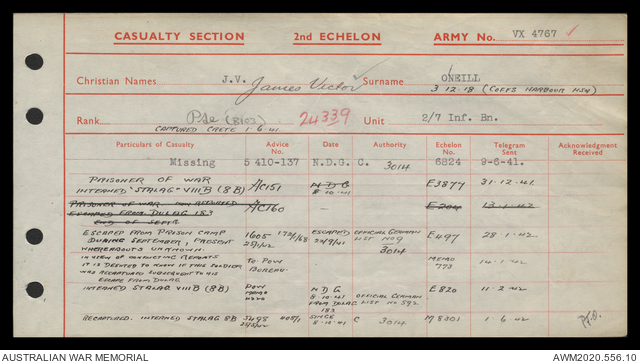 CASUALTY SECTION 2nd ECHELON ARMY No. VX 4767
Christian Names J.V. James Victor Surname O'NEILL
3 12 18 (COFFS HARBOUR NSW)
Rank Pte (8103) 24339 Unit 2/7 Inf. Bn.
CAPTURED CRETE 1.6.41.
Particulars of Casualty Advice No. Date Authority Echelon No. Telegram Sent Acknowledgment Received
Missing 5 410-137 N.D.G. C. 3014 6824 9-6-41.
PRISONER OF WAR
INTERNED "STALAG" VIII B (8B) A/C151 N D G 8-10-41 E3877 31.12.41.
PRISONER OF WAR NOW REPORTED A/C160 13.1.42
ESCAPED FROM DULAG 183
END OF SEPTR
ESCAPED FROM PRISON CAMP 1605 172/1/68 ESCAPED OFFICIAL GERMAN E497 28.1.42
DURING SEPTEMBER, PRESENT 29/1/42 LIST NO 9
WHEREABOUTS UNKNOWN. 3014
IN VIEW OF CONFLICTING REPORTS TO POW MEMO 14.1.42
IT IS DESIRED TO KNOW IF THIS SOLDIER BUREAU 773
WAS RECAPTURED SUBSEQUENT TO HIS
ESCAPE FROM DULAG
INTERNED STALAG VIII B (8B) POW MEMO N D G E820 11.2.42
8-10-41 OFFICIAL GERMAN
FROM DULAG LIST NO 592
183
RECAPTURED. INTERNED STALAG 8B SINCE 8-10-41 C 3014 M8301 1.6.42
P.T.O.
AUSTRALIAN WAR MEMORIAL AWM2020.556.10